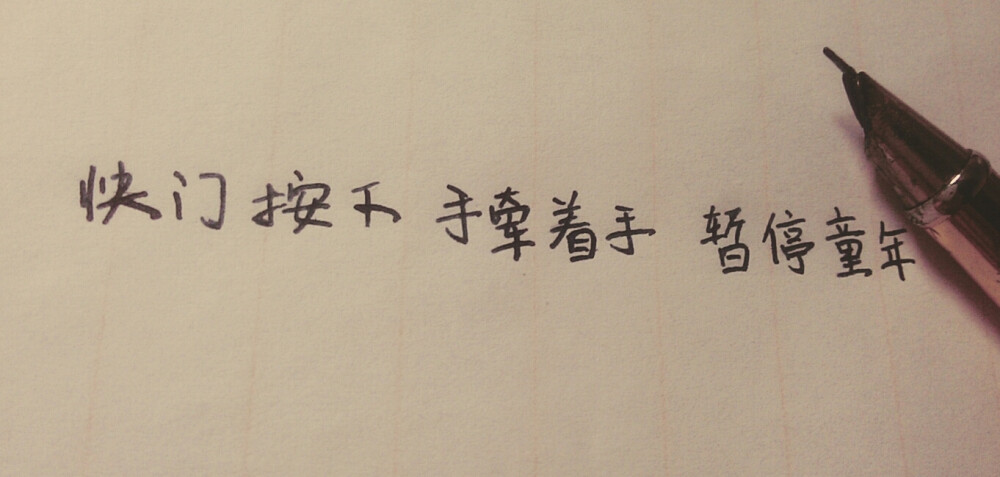 快门按下 手牵着手 暂停童年